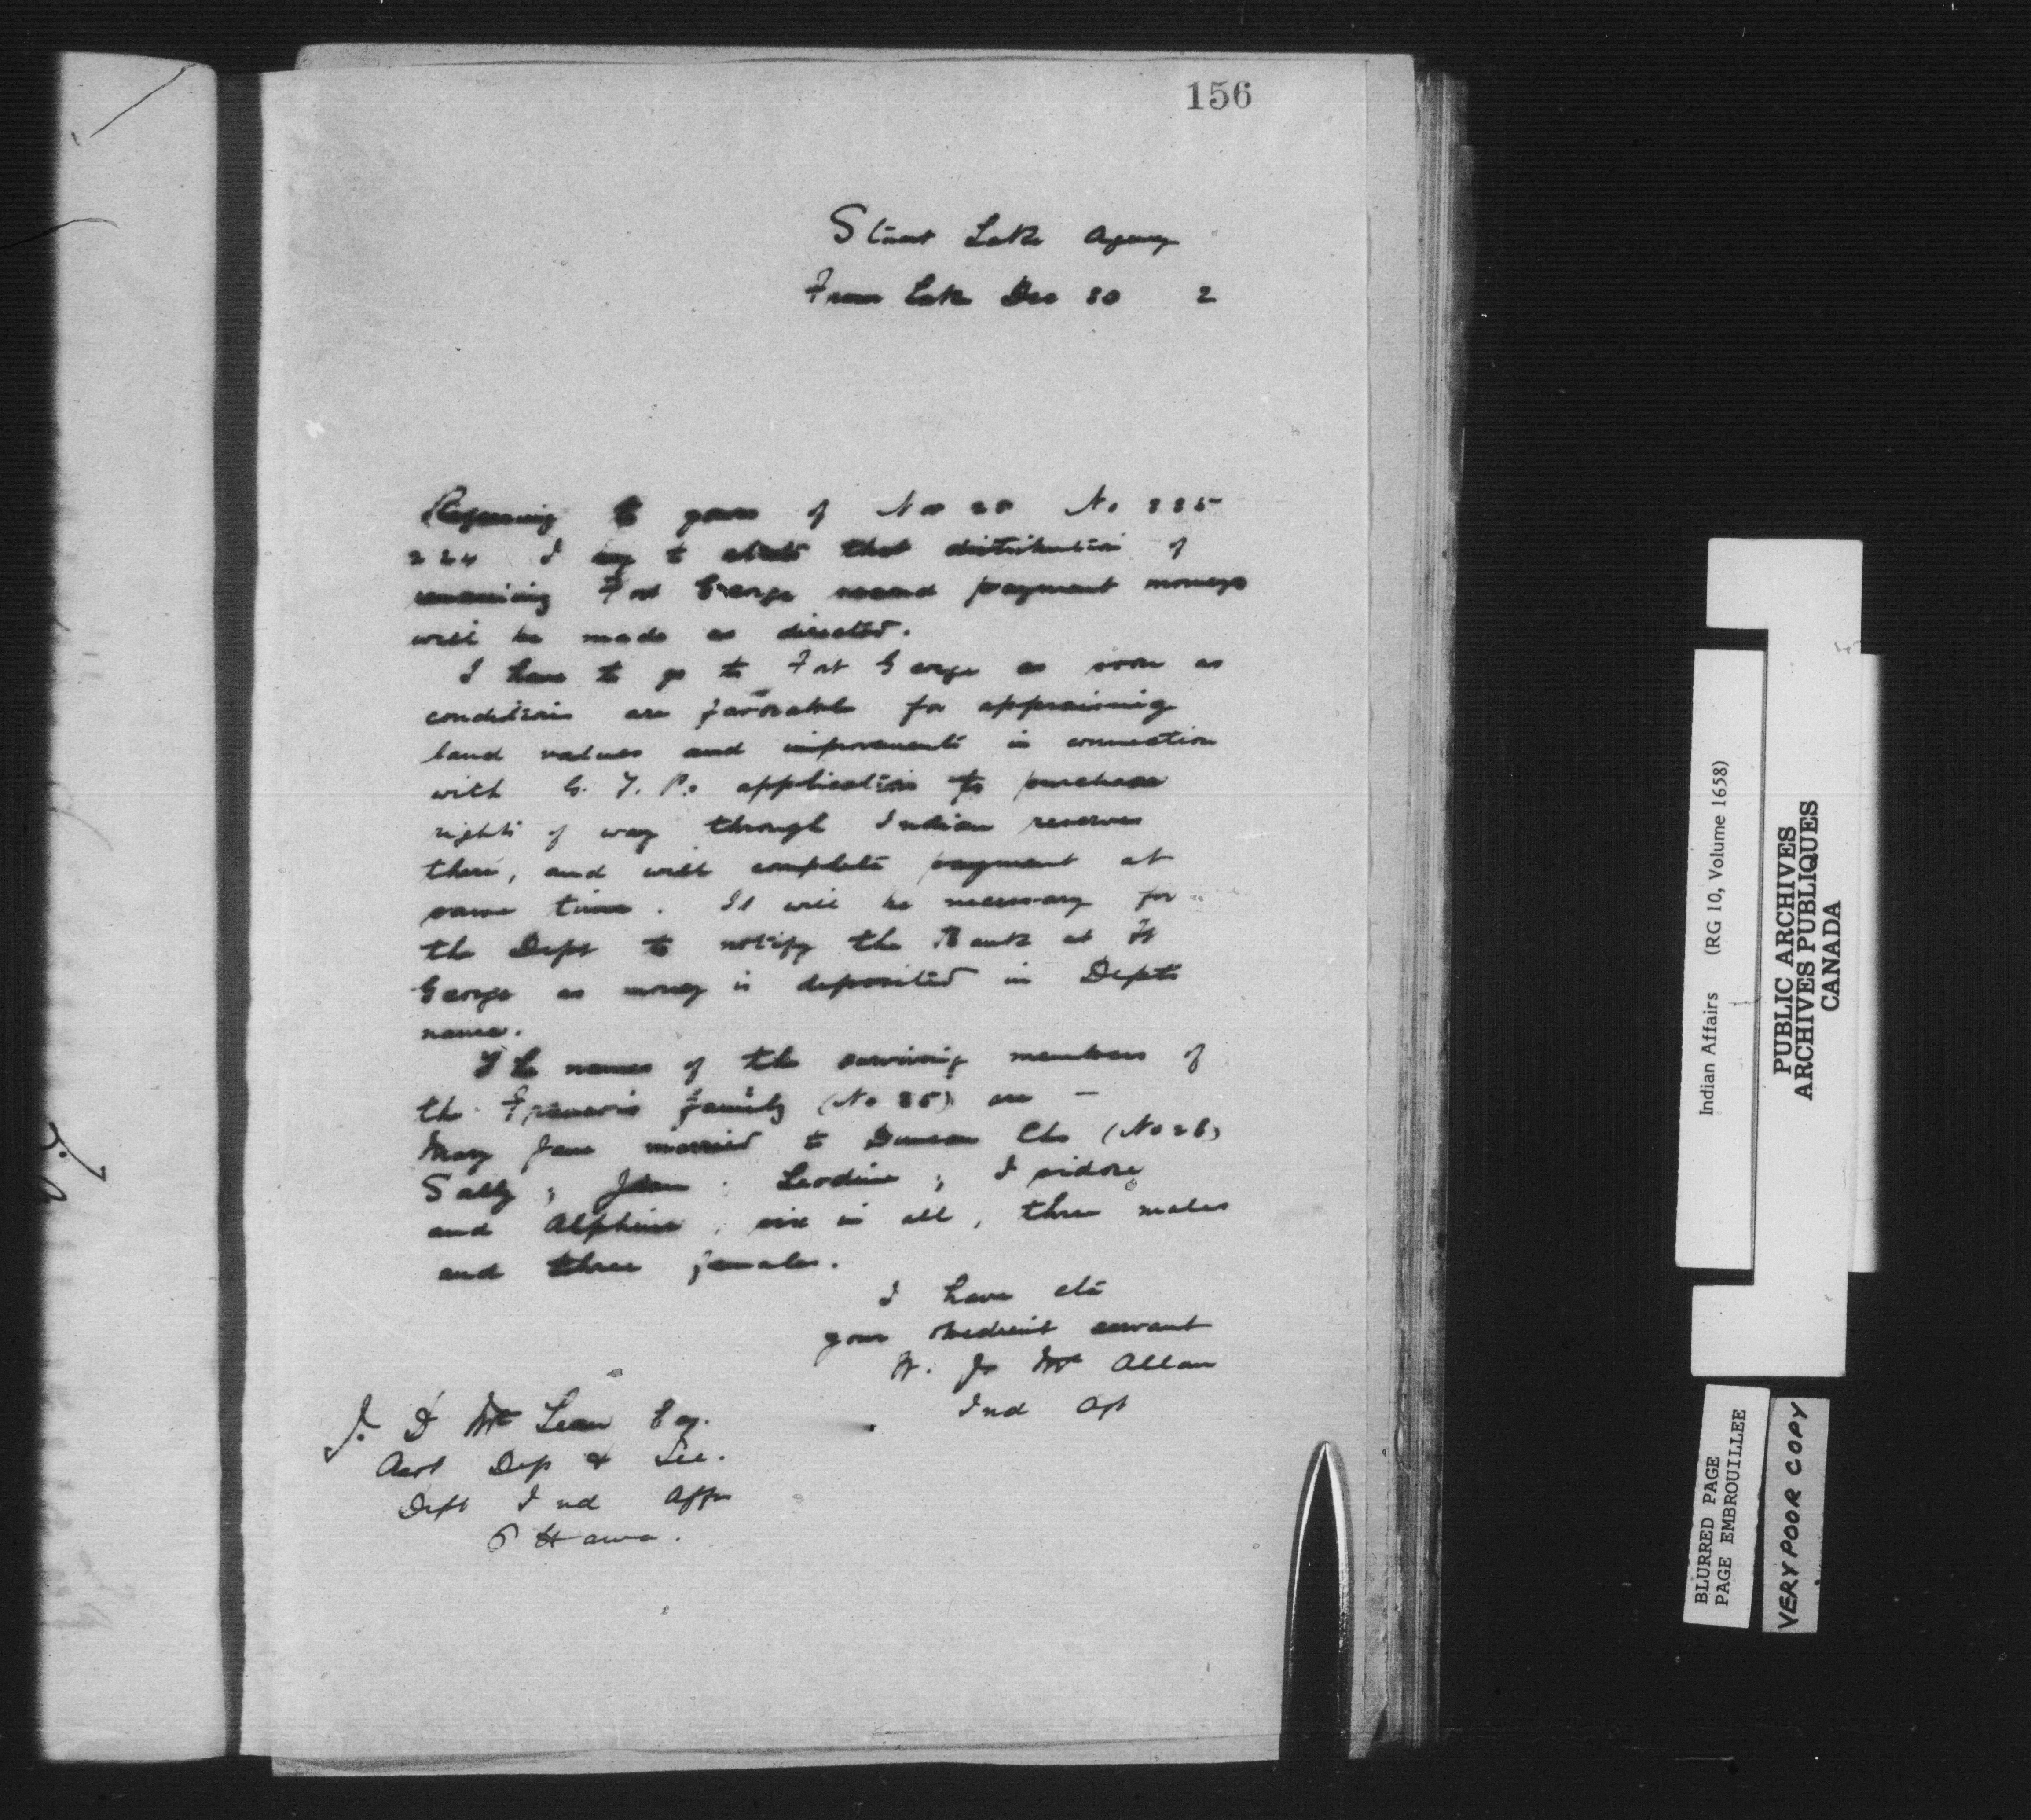 156
Stuart Lake Agency
Fraser Lake Dec 30 2
Referring to yours of Nov 20 No 335
224 I beg to state that distribution of
remaining Fort George second payment moneys
will be made as directed.
I have to go to Fort George as soon as
conditions are favorable for appraising
land values and improvements in connection
with G. T. P. application to purchase
rights of way through Indian reserves
there, and will complete payment at
same time. It will be necessary for
the Dept to notify the Bank at Ft
George as money is deposited in Depts
name.
The names of the surviving members of
the family (No 35) are —
Mary Jane married to Duncan (No 26)
Sally ; ; ; Isidore,
and six in all, three males
and three females.
I have etc
your obedient servant
W. J. Mc Allan
Ind Agt
J. D Mc Lean Esq.
Asst Dep & Sec.
Dept Ind Affrs
Ottawa.
Indian Affairs (RG 10, Volume 1658)
PUBLIC ARCHIVES
ARCHIVES PUBLIQUES
CANADA
BLURRED PAGE
PAGE EMBROUILLEE
VERY POOR COPY